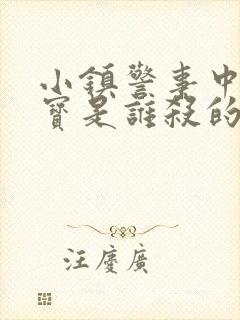 小鎮警事中
寶是誰殺的
汪慶廣